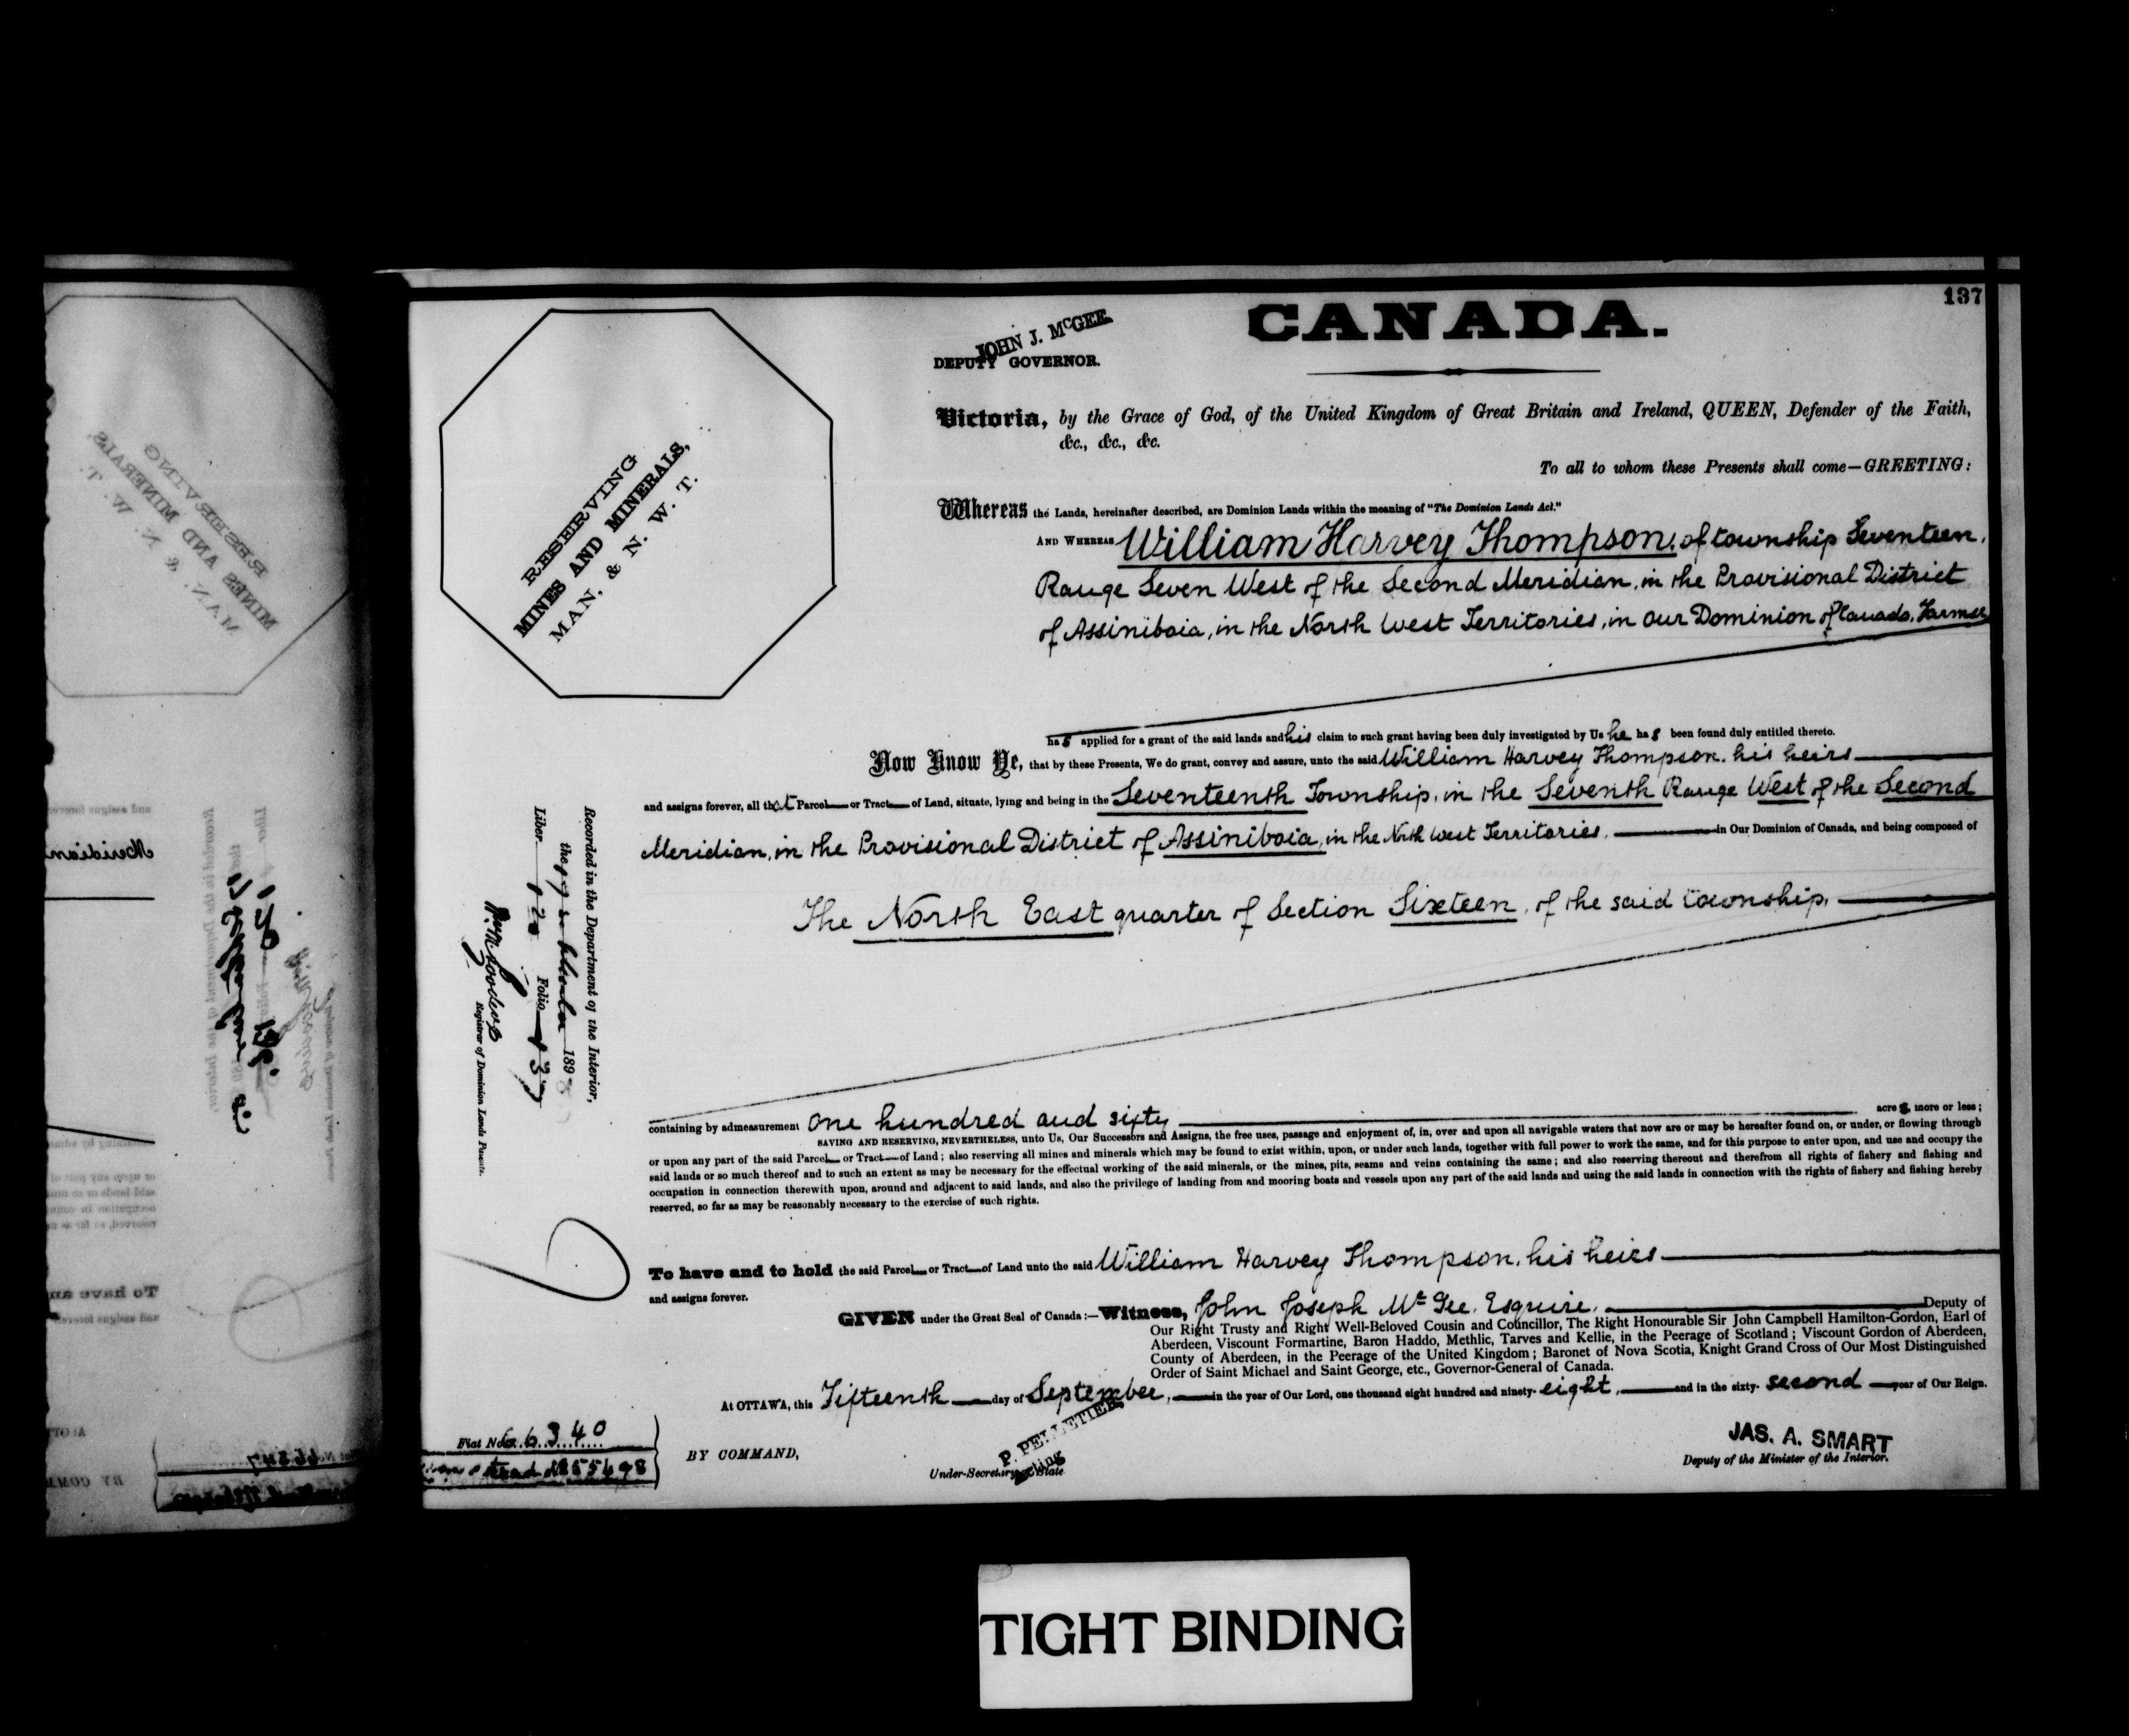 137
CANADA.
JOHN J. McGEE.
DEPUTY GOVERNOR.
RESERVING
MINES AND MINERALS,
MAN, & N. W. T.
Victoria, by the Grace of God, of the United Kingdom of Great Britain and Ireland, QUEEN, Defender of the Faith,
&c., &c., &c.
To all to whom these Presents shall come—GREETING:
Whereas the Lands, hereinafter described, are Dominion Lands within the meaning of "The Dominion Lands Act."
AND WHEREAS William Harvey Thompson, of township Seventeen,
Range Seven West of the Second Meridian, in the Provisional District
of Assiniboia, in the North West Territories, in our Dominion of Canada, Farmer
has applied for a grant of the said lands and his claim to such grant having been duly investigated by Us he has been found duly entitled thereto.
Now Know Ye, that by these Presents, We do grant, convey and assure, unto the said William Harvey Thompson, his heirs
and assigns forever, all that Parcel or Tract of Land, situate, lying and being in the Seventeenth Township, in the Seventh Range West of the Second
Meridian, in the Provisional District of Assiniboia, in the North West Territories, in Our Dominion of Canada, and being composed of
The North East quarter of Section Sixteen, of the said township,
Recorded in the Department of the Interior,
the 189
Liber Folio 137
Registrar of Dominion Lands Patents.
containing by admeasurement one hundred and sixty acres, more or less;
SAVING AND RESERVING, NEVERTHELESS, unto Us, Our Successors and Assigns, the free uses, passage and enjoyment of, in, over and upon all navigable waters that now are or may be hereafter found on, or under, or flowing through
or upon any part of the said Parcel or Tract of Land; also reserving all mines and minerals which may be found to exist within, upon, or under such lands, together with full power to work the same, and for this purpose to enter upon, and use and occupy the
said lands or so much thereof and to such an extent as may be necessary for the effectual working of the said minerals, or the mines, pits, seams and veins containing the same; and also reserving thereout and therefrom all rights of fishery and fishing and
occupation in connection therewith upon, around and adjacent to said lands, and also the privilege of landing from and mooring boats and vessels upon any part of the said lands and using the said lands in connection with the rights of fishery and fishing hereby
reserved, so far as may be reasonably necessary to the exercise of such rights.
To have and to hold the said Parcel or Tract of Land unto the said William Harvey Thompson, his heirs
and assigns forever.
GIVEN under the Great Seal of Canada:—Witness, John Joseph McGee, Esquire, Deputy of
Our Right Trusty and Right Well-Beloved Cousin and Councillor, The Right Honourable Sir John Campbell Hamilton-Gordon, Earl of
Aberdeen, Viscount Formartine, Baron Haddo, Methlic, Tarves and Kellie, in the Peerage of Scotland; Viscount Gordon of Aberdeen,
County of Aberdeen, in the Peerage of the United Kingdom; Baronet of Nova Scotia, Knight Grand Cross of Our Most Distinguished
Order of Saint Michael and Saint George, etc., Governor-General of Canada.
At OTTAWA, this Fifteenth day of September, in the year of Our Lord, one thousand eight hundred and ninety-eight, and in the sixty-second year of Our Reign.
Fiat No. 66340
BY COMMAND,
P. PELLETIER
Acting
Under-Secretary of State
JAS. A. SMART
Deputy of the Minister of the Interior.
TIGHT BINDING